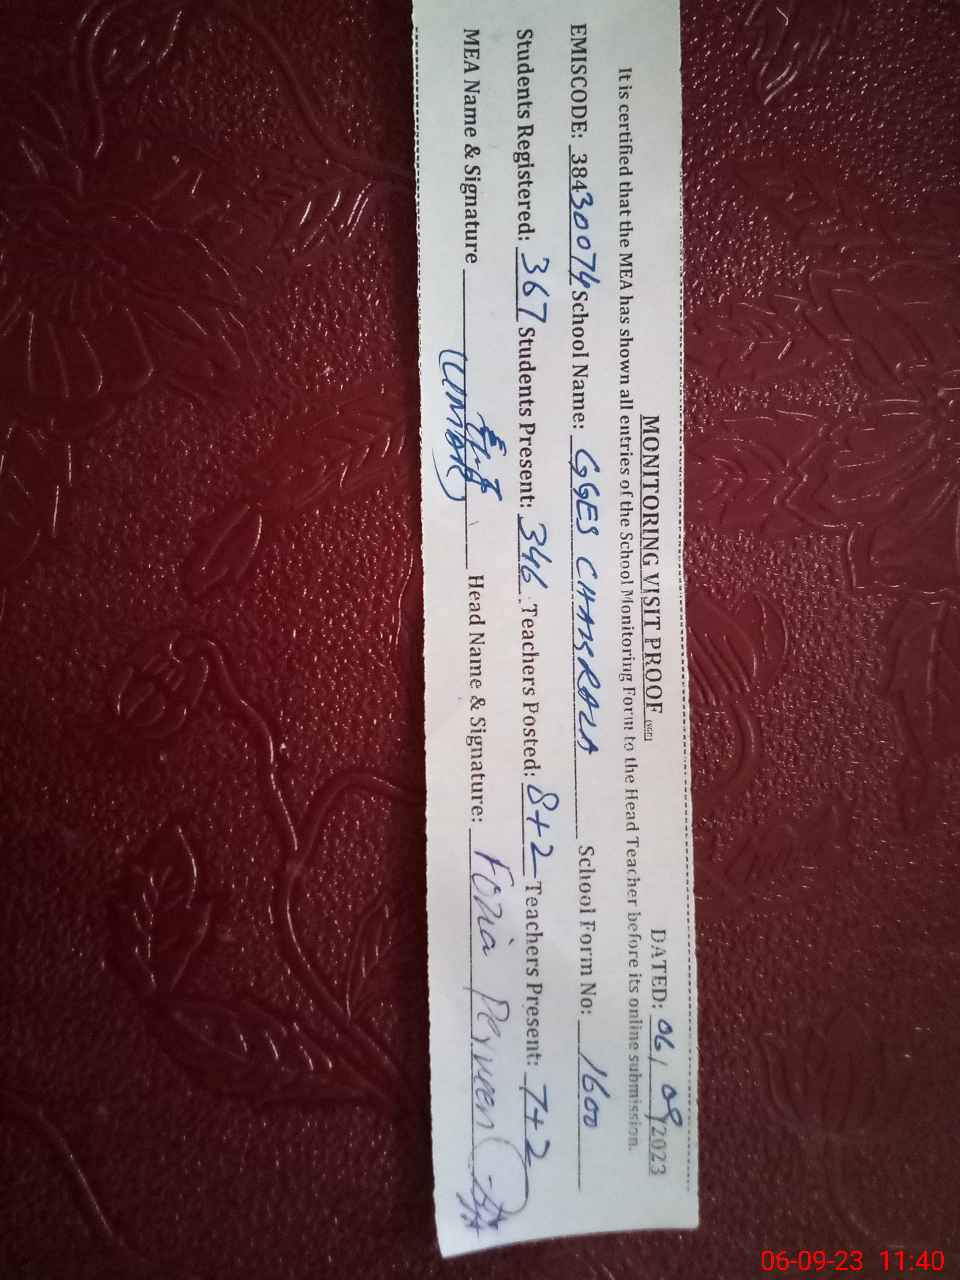 MONITORING VISIT PROOF
DATED: 06/09/2023
It is certified that the MEA has shown all entries of the School Monitoring Form to the Head Teacher before its online submission.
EMISCODE: 38430074 School Name: GGES CHAK RAZA School Form No: 1600
Students Registered: 367 Students Present: 346 Teachers Posted: 8+2 Teachers Present: 7+2
MEA Name & Signature (UMAR) Head Name & Signature: Fozia Perveen
06-09-23 11:40